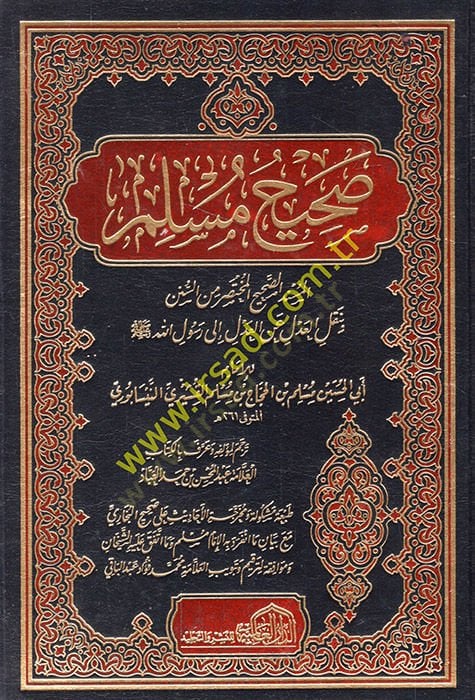 صَحِيحُ مُسْلِم
المسند الصحيح المختصر من السنن
بنقل العدل عن العدل إلى رسول الله ﷺ
أبي الحسين مسلم بن الحجاج بن مسلم القشيري النيسابوري
المتوفى ٢٦١ هـ
ترجم لمؤلفه وعرّف بالكتاب
العلامة عبد المحسن بن حمد العباد
طبعة مشكولة ومخرجة الأحاديث على صحيح البخاري
مع بيان ما انفرد به الإمام مسلم وما اتفق عليه الشيخان
وموافقة لترقيم وتبويب العلامة محمد فؤاد عبد الباقي
الدار العالمية
للنشر والتجليد
www.irsad.com.tr